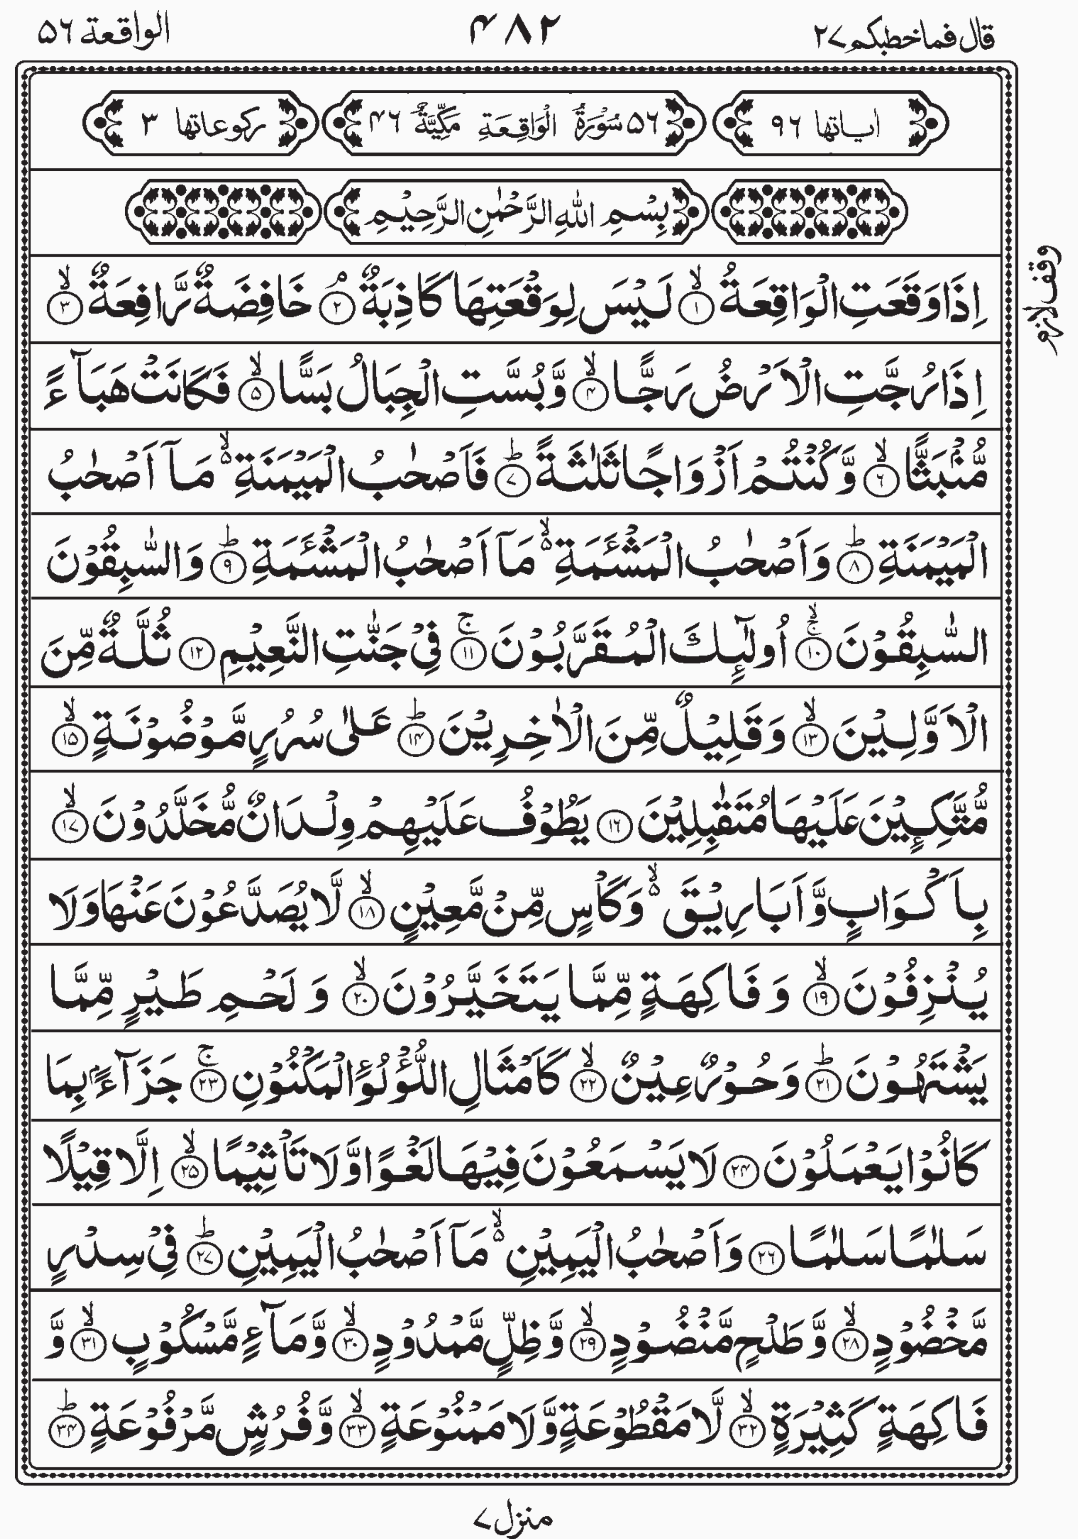 قال فماخطبكم ٢٧ ٤٨٢ الواقعة ٥٦
اياتها ٩٦ ٥٦ سُوْرَةُ الْوَاقِعَةِ مَكِّيَّةٌ ٤٦ ركوعاتها ٣
بِسْمِ اللهِ الرَّحْمٰنِ الرَّحِيْمِ
اِذَا وَقَعَتِ الْوَاقِعَةُ ۙ﴿١﴾ لَيْسَ لِوَقْعَتِهَا كَاذِبَةٌ ۘ﴿٢﴾ خَافِضَةٌ رَّافِعَةٌ ۙ﴿٣﴾
وقف لازم
اِذَا رُجَّتِ الْاَرْضُ رَجًّا ۙ﴿٤﴾ وَّبُسَّتِ الْجِبَالُ بَسًّا ۙ﴿٥﴾ فَكَانَتْ هَبَآءً
مُّنْۢبَثًّا ۙ﴿٦﴾ وَّكُنْتُمْ اَزْوَاجًا ثَلٰثَةً ؕ﴿٧﴾ فَاَصْحٰبُ الْمَيْمَنَةِ ۙ۬ مَاۤ اَصْحٰبُ
الْمَيْمَنَةِ ؕ﴿٨﴾ وَاَصْحٰبُ الْمَشْـَٔمَةِ ۙ۬ مَاۤ اَصْحٰبُ الْمَشْـَٔمَةِ ؕ﴿٩﴾ وَالسّٰبِقُوْنَ
السّٰبِقُوْنَ ۚۙ﴿١٠﴾ اُولٰٓئِكَ الْمُقَرَّبُوْنَ ۚ﴿١١﴾ فِيْ جَنّٰتِ النَّعِيْمِ ﴿١٢﴾ ثُلَّةٌ مِّنَ
الْاَوَّلِيْنَ ۙ﴿١٣﴾ وَقَلِيْلٌ مِّنَ الْاٰخِرِيْنَ ؕ﴿١٤﴾ عَلٰى سُرُرٍ مَّوْضُوْنَةٍ ۙ﴿١٥﴾
مُّتَّكِـِٕيْنَ عَلَيْهَا مُتَقٰبِلِيْنَ ﴿١٦﴾ يَطُوْفُ عَلَيْهِمْ وِلْدَانٌ مُّخَلَّدُوْنَ ۙ﴿١٧﴾
بِاَكْوَابٍ وَّاَبَارِيْقَ ۙ۬ وَكَاْسٍ مِّنْ مَّعِيْنٍ ۙ﴿١٨﴾ لَّا يُصَدَّعُوْنَ عَنْهَا وَلَا
يُنْزِفُوْنَ ۙ﴿١٩﴾ وَفَاكِهَةٍ مِّمَّا يَتَخَيَّرُوْنَ ۙ﴿٢٠﴾ وَلَحْمِ طَيْرٍ مِّمَّا
يَشْتَهُوْنَ ؕ﴿٢١﴾ وَحُوْرٌ عِيْنٌ ۙ﴿٢٢﴾ كَاَمْثَالِ اللُّؤْلُؤِ الْمَكْنُوْنِ ۚ﴿٢٣﴾ جَزَآءًۢ بِمَا
كَانُوْا يَعْمَلُوْنَ ﴿٢٤﴾ لَا يَسْمَعُوْنَ فِيْهَا لَغْوًا وَّلَا تَاْثِيْمًا ۙ﴿٢٥﴾ اِلَّا قِيْلًا
سَلٰمًا سَلٰمًا ﴿٢٦﴾ وَاَصْحٰبُ الْيَمِيْنِ ۙ۬ مَاۤ اَصْحٰبُ الْيَمِيْنِ ؕ﴿٢٧﴾ فِيْ سِدْرٍ
مَّخْضُوْدٍ ۙ﴿٢٨﴾ وَّطَلْحٍ مَّنْضُوْدٍ ۙ﴿٢٩﴾ وَّظِلٍّ مَّمْدُوْدٍ ۙ﴿٣٠﴾ وَّمَآءٍ مَّسْكُوْبٍ ۙ﴿٣١﴾ وَّ
فَاكِهَةٍ كَثِيْرَةٍ ۙ﴿٣٢﴾ لَّا مَقْطُوْعَةٍ وَّلَا مَمْنُوْعَةٍ ۙ﴿٣٣﴾ وَّفُرُشٍ مَّرْفُوْعَةٍ ؕ﴿٣٤﴾
منزل ٧